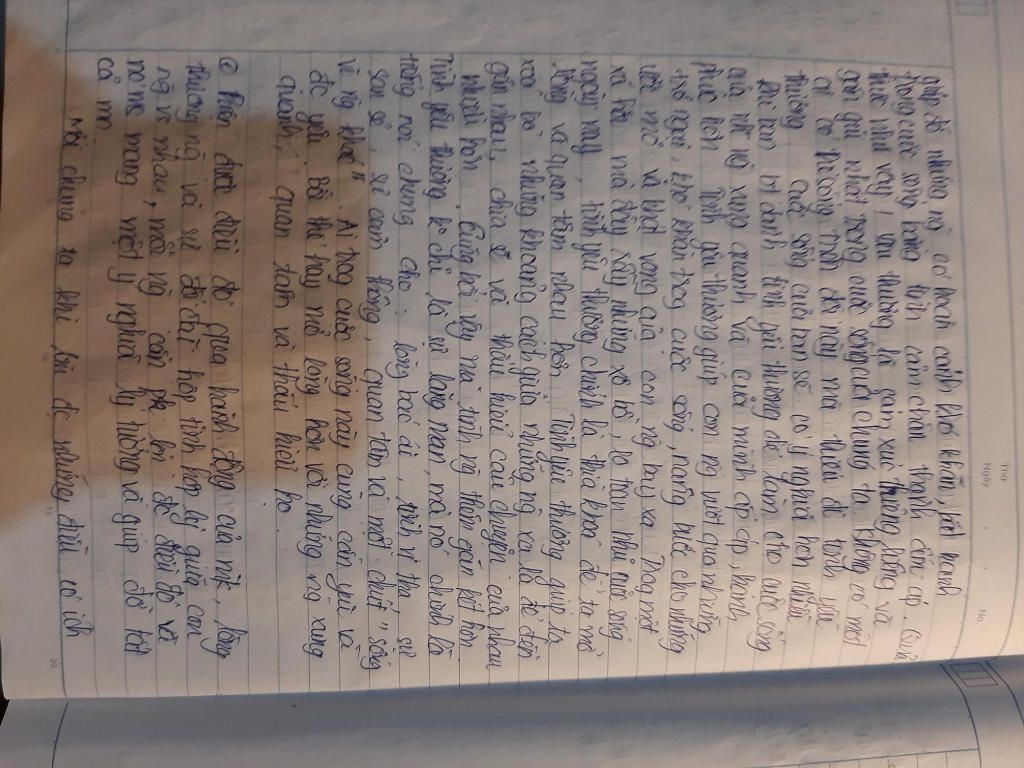 Thứ
Ngày
No.
giúp đỡ những ng có hoàn cảnh khó khăn, bất hạnh
trong cuộc sống bằng tình cảm chân thành
thức như vậy, yêu thương là cảm xúc thiêng liêng và
gần gũi nhất trong cuộc sống của chúng ta. Không có một
ai có thể sống trên đời này mà thiếu đi tình yêu
thương. Cuộc sống của bạn sẽ có ý nghĩa hơn nhiều
khi bạn biết dành tình yêu thương để làm cho cuộc sống
của n~ ng xung quanh và của mình ấp, hạnh
phúc hơn. Tình yêu thương giúp con ng vượt qua những
trở ngại, khó khăn trog cuộc sống, nâng bước cho những
ước mơ và khát vọng của con ng bay xa. Trog một
xã hội mà đầy rẫy những xô bồ, lo toan như cuộc sống
ngày nay, tình yêu thương chính là thìa khoá để ta mở
lòng và quan tâm nhau hơn. Tình yêu thương giúp ta
xoá bỏ những khoảng cách giữa những ng xa lạ để đến
gần nhau, chia sẻ và thấu hiểu câu chuyện của nhau
nhiều hơn. Cũng bởi vậy mà tình ng thêm gắn kết hơn.
Tình yêu thương ko chỉ là sự lãng mạn, mà nó chính là
tiếng nói chung cho lòng bác ái, tình vị tha, sự
san sẻ, sự cảm thông, quan tâm và một chút "sống
vì ng khác". Ai trog cuộc sống này cũng cần yêu và
đc yêu. Bởi thế hãy mở lòng hơn với những ng xung
quanh, quan tâm và thấu hiểu họ.
thương ng và sự đối đãi hợp tình hợp lý giữa con
ng vs nhau, mỗi ng cần phải luôn
mang một ý nghĩa lý tưởng và giúp đỡ
Mỗi chúng ta khi những điều có ích